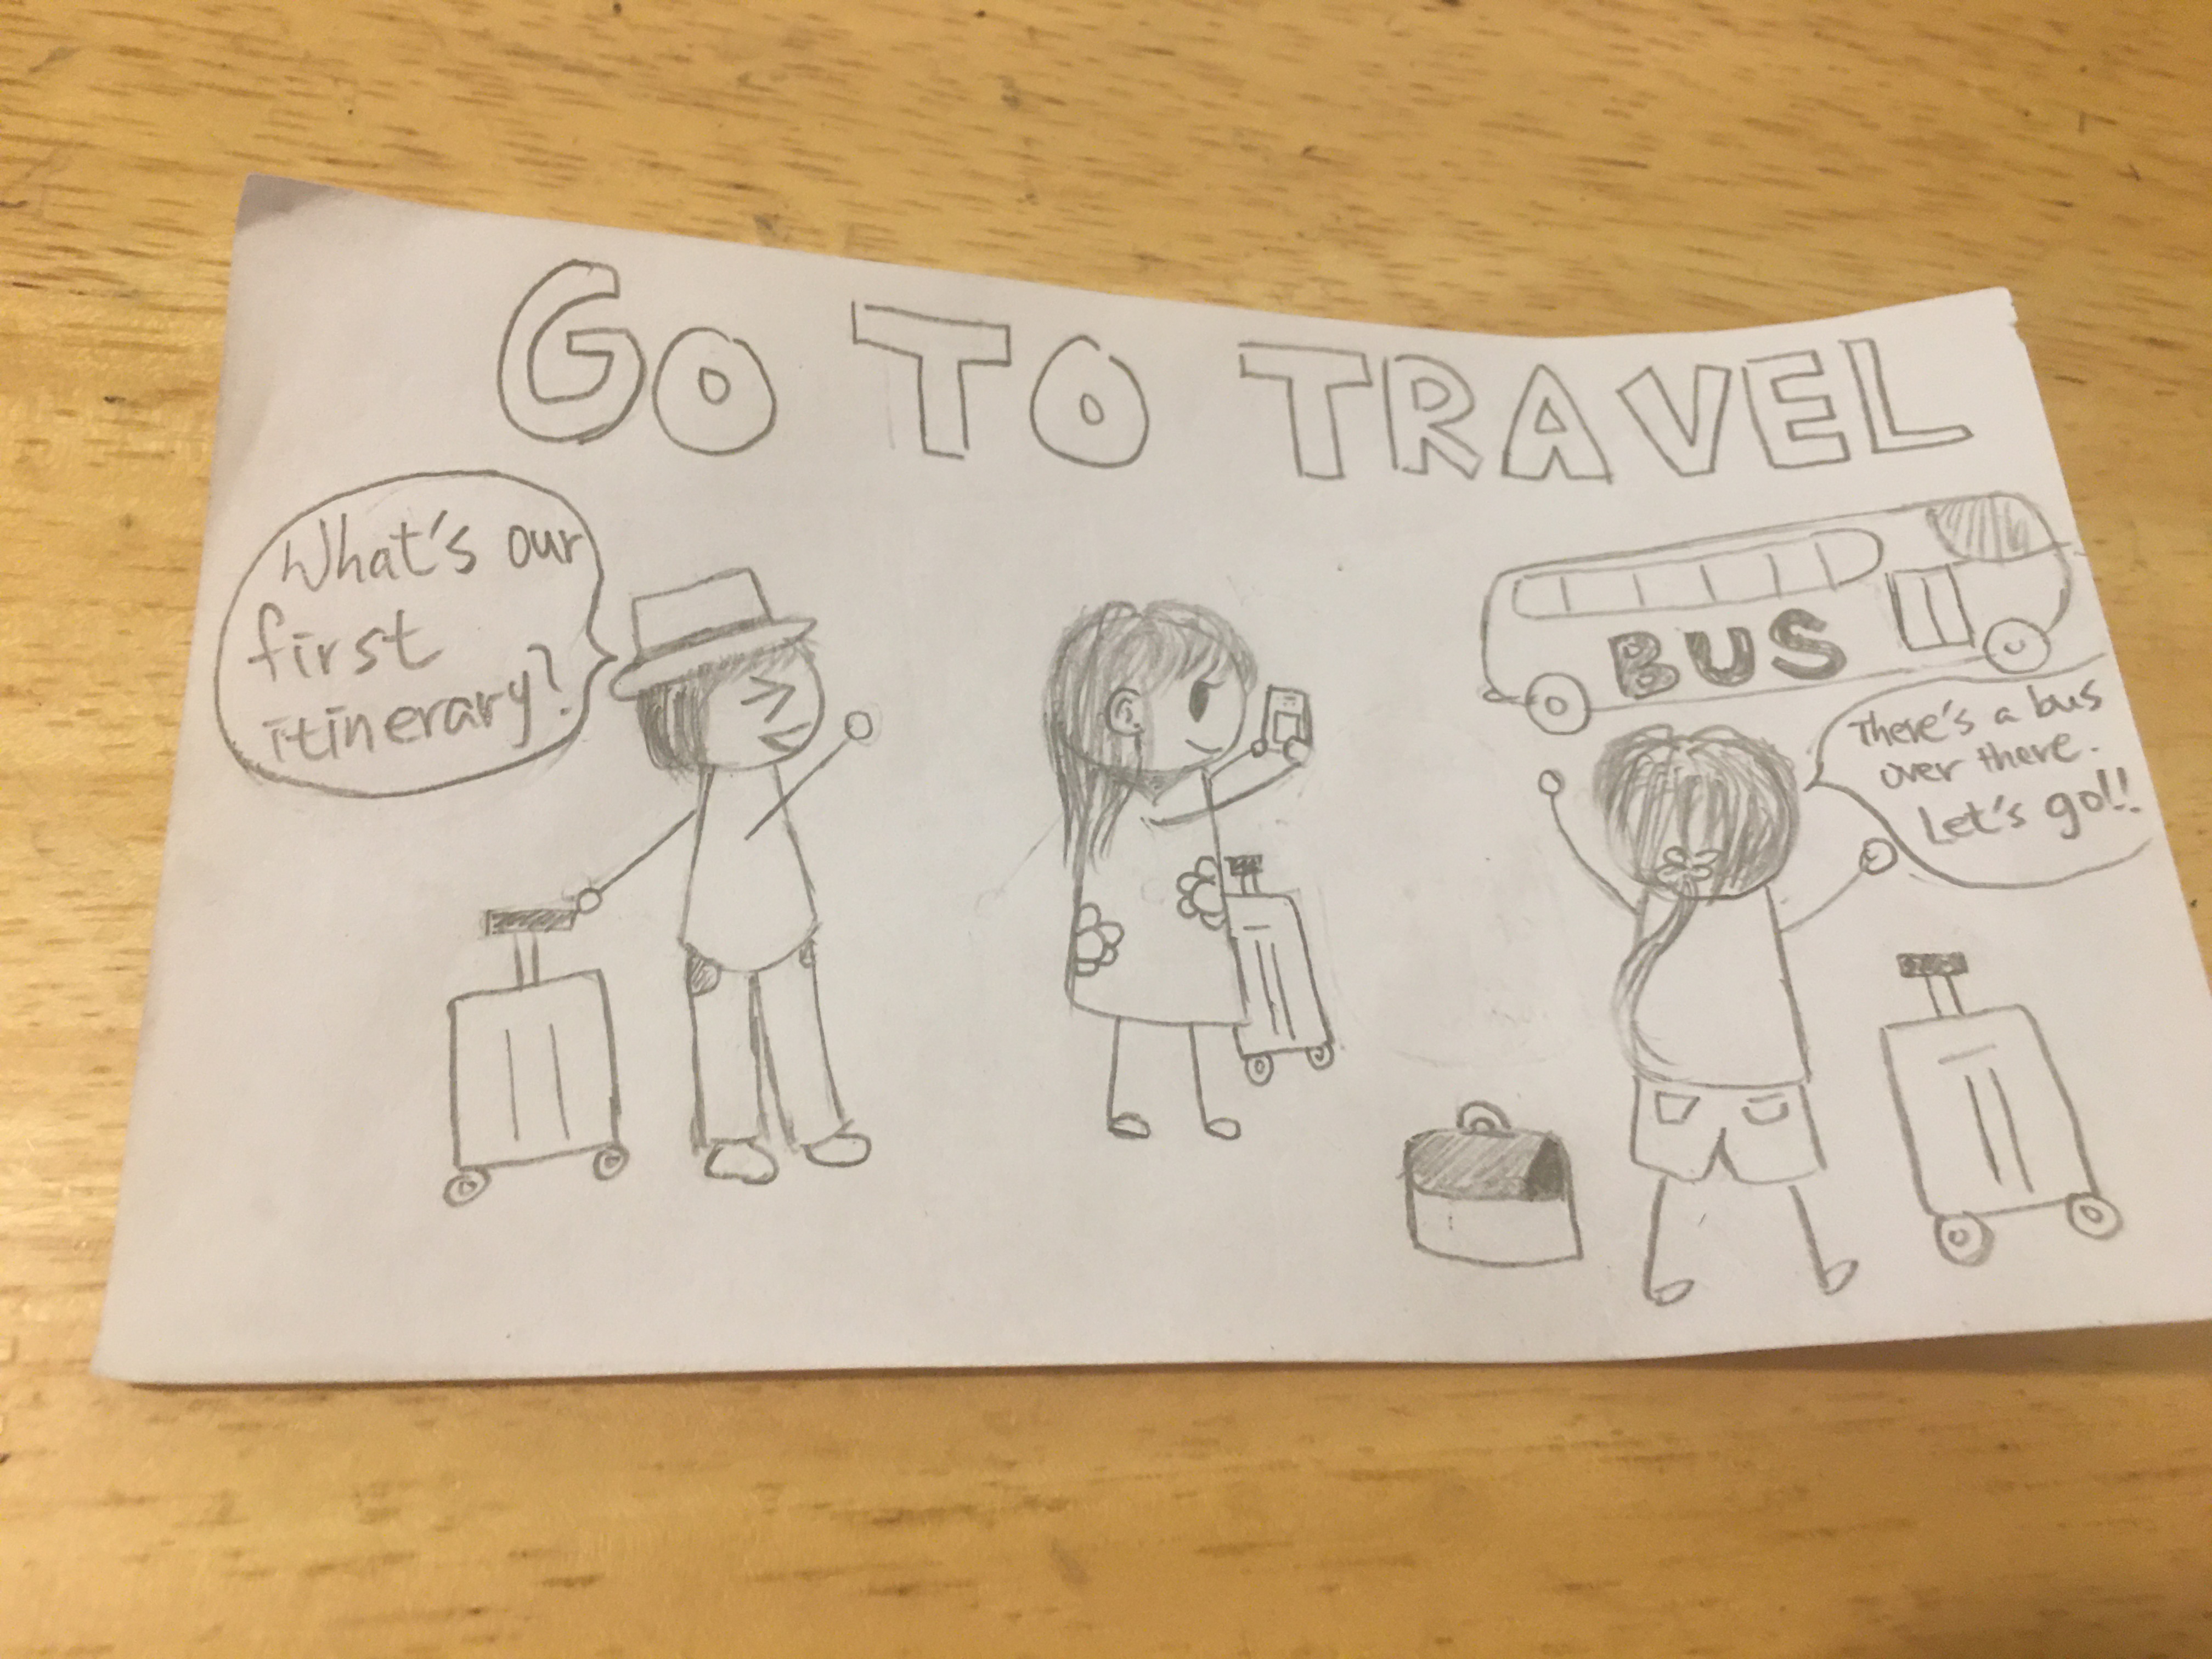 GO TO TRAVEL
What's our
first
itinerary?
BUS
There's a bus
over there.
Let's go!!